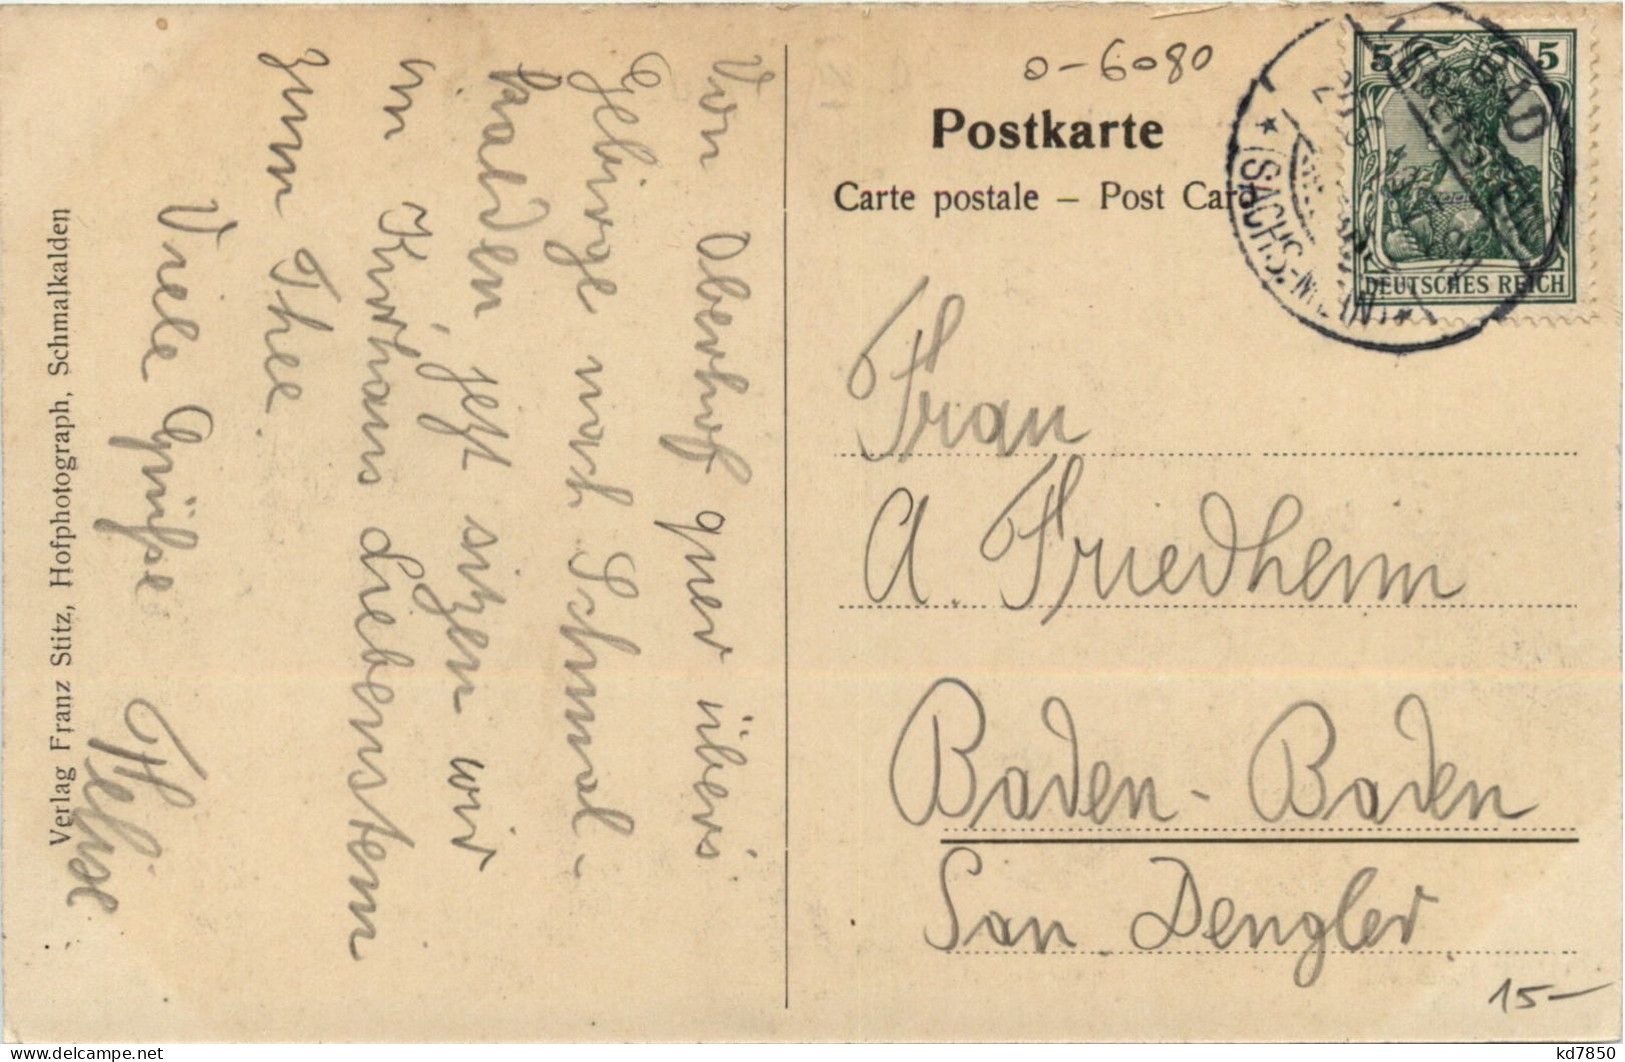 o-6080
Postkarte
Carte postale – Post Card
5 5
DEUTSCHES REICH
BAD
(SACHS.-MEIN.)
Von Oberhof quer übers
Gebirge nach Schmal-
kalden, jetzt sitzen wir
im Kurhaus Liebenstein
zum Thee.
Viele Grüße
Verlag Franz Stitz, Hofphotograph, Schmalkalden
Frau
A. Friedheim
Baden-Baden
San Dengler
15-
kd7850